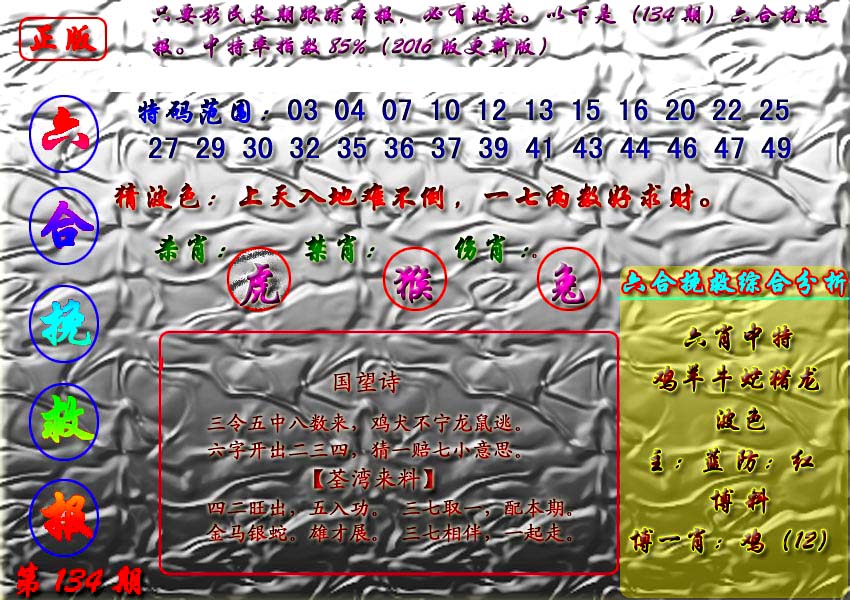 正版
只要彩民长期跟踪本报，必有收获。以下是（134期）六合挽救
报。中特率指数85%（2016版更新版）
六
合
挽
救
报
第134期
特码范围：03 04 07 10 12 13 15 16 20 22 25
27 29 30 32 35 36 37 39 41 43 44 46 47 49
猜波色：上天入地难不倒，一七两数好求财。
杀肖：虎 禁肖：猴 伤肖：兔。
国望诗
三令五中八数来，鸡犬不宁龙鼠逃。
六字开出二三四，猜一赔七小意思。
【荃湾来料】
四二旺出，五八功。 三七取一，配本期。
金马银蛇。雄才展。 三七相伴，一起走。
六合挽救综合分析
六肖中特
鸡羊牛蛇猪龙
波色
主：蓝防：红
博料
博一肖：鸡（12）